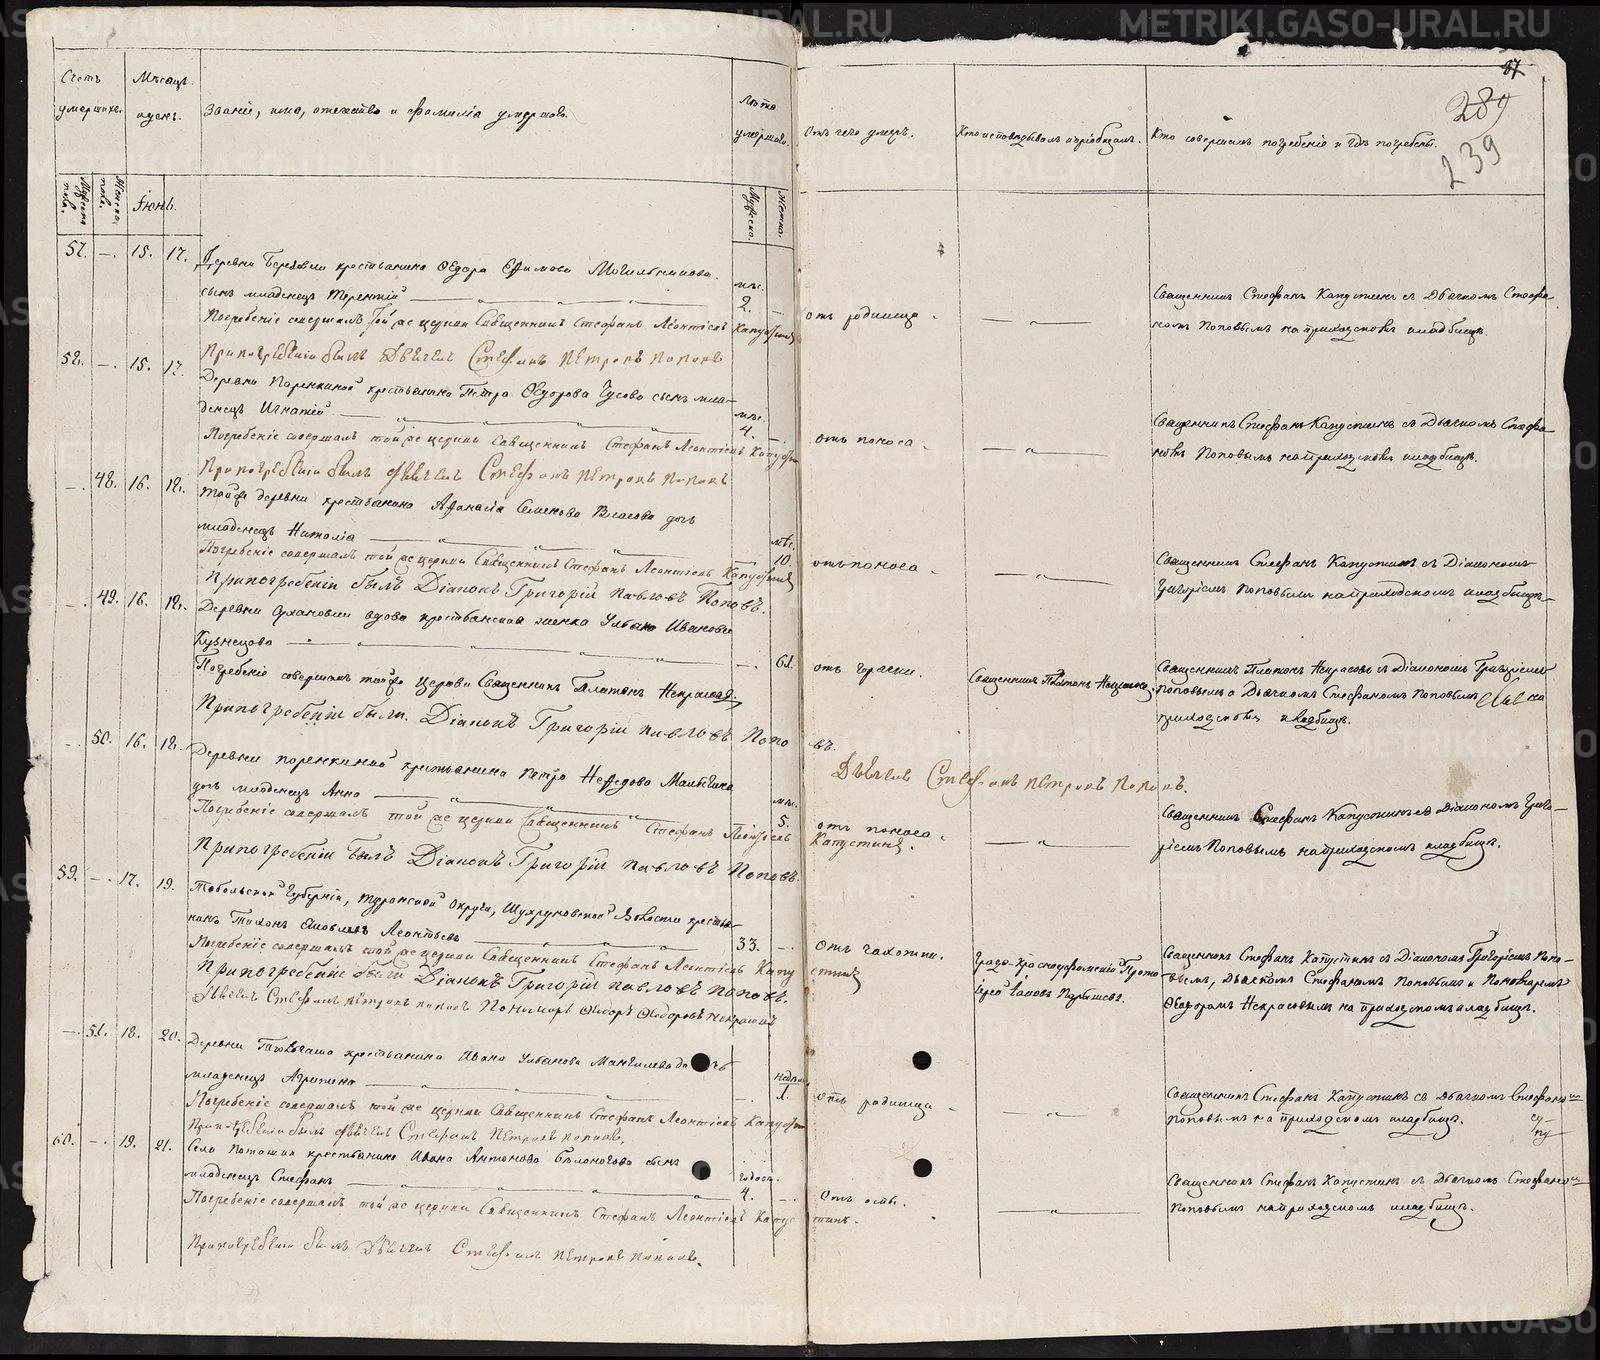 Счетъ умершихъ.
Мѣсяцъ и день.
Званіе, имя, отечество и фамилія умершаго.
Лѣта умершаго.
Отъ чего умеръ.
Кто исповѣдывалъ и пріобщалъ.
Кто совершалъ погребеніе и гдѣ погребены.
87
289
239
Мужеска пола.
Женска пола.
Іюнь.
Мужеска.
Женска.
57. —. 15. 17.
крестьянина Ѳедора Ефимова Могильникова
сынъ младенецъ Терентій
мѣс. 2.
отъ родимца
Священникъ Стефанъ Капустинъ съ Дьячкомъ Стефа-
номъ Поповымъ на приходскомъ кладбищѣ.
Погребеніе совершалъ той же церкви Священникъ Стефанъ Леонтіевъ Капустинъ
При погребеніи былъ Дьячекъ Стефанъ Петровъ Поповъ
58. —. 15. 17.
Деревни крестьянина Петра Ѳедорова сынъ мла-
денецъ Игнатій
мѣс. 4.
отъ поноса
Священникъ Стефанъ Капустинъ съ Дьячкомъ Стефа-
номъ Поповымъ на приходскомъ кладбищѣ.
Погребеніе совершалъ той же церкви Священникъ Стефанъ Леонтіевъ Капустин
При погребеніи былъ Дьячекъ Стефанъ Петровъ Поповъ
—. 48. 16. 18.
Той же деревни крестьянина Афанасія Семенова Власова дочь
младенецъ Наталія
мѣс. 10.
отъ поноса
Священникъ Стефанъ Капустинъ съ Діакономъ
Григоріемъ Поповымъ на приходскомъ кладбищѣ
Погребеніе совершалъ той же церкви Священникъ Стефанъ Леонтіевъ Капустинъ
При погребеніи былъ Діаконъ Григорій Павловъ Поповъ.
—. 49. 16. 18.
Деревни вдова крестьянская женка Иванова
Кузнецова
—. 61.
отъ горячки.
Священникъ Платонъ Некрасовъ съ Діакономъ Григоріемъ
Поповымъ и Дьячкомъ Стефаномъ Поповымъ на
приходскомъ кладбищѣ.
Погребеніе совершалъ той же Церкви Священникъ Платонъ Некрасовъ
При погребеніи были. Діаконъ Григорій Павловъ Поповъ.
Дьячекъ Стефанъ Петровъ Поповъ.
—. 50. 16. 18.
Деревни крестьянина Петра
дочь младенецъ Анна
мѣс. 5.
отъ поноса
Священникъ Стефанъ Капустинъ съ Діакономъ Григо-
ріемъ Поповымъ на приходскомъ кладбищѣ.
Погребеніе совершалъ той же церкви Священникъ Стефанъ Леонтіевъ Капустинъ.
При погребеніи былъ Діаконъ Григорій Павловъ Поповъ.
59. —. 17. 19.
Тобольской Губерніи, Округи, Волости крестья-
нинъ Тихонъ Леонтьевъ
33. —.
Отъ чахотки.
Градо-Красноуфимскій Прото
іерей
Священникъ Стефанъ Капустинъ съ Діакономъ Григоріемъ Попо-
вымъ, Дьячкомъ Стефаномъ Поповымъ и Пономаремъ
Ѳедоромъ Некрасовымъ на приходскомъ кладбищѣ.
Погребеніе совершалъ той же церкви Священникъ Стефанъ Леонтіевъ Капустинъ
При погребеніи были Діаконъ Григорій Павловъ Поповъ.
Дьячекъ Стефанъ Петровъ Поповъ Пономарь Ѳедоръ Ѳедоровъ Некрасовъ
—. 51. 18. 20.
Деревни крестьянина Ивана дочь
младенецъ
недѣл. 1.
отъ родимца
Священникъ Стефанъ Капустинъ съ Дьячкомъ Стефаномъ
Поповымъ на приходскомъ кладбищѣ.
Погребеніе совершалъ той же церкви Священникъ Стефанъ Леонтіевъ Капустин
При погребеніи былъ Дьячекъ Стефанъ Петровъ Поповъ.
60. —. 19. 21.
Села Поташки крестьянина Ивана Антонова Бѣлоногова сынъ
младенецъ Стефанъ
4. —.
Отъ оспы.
Священникъ Стефанъ Капустинъ съ Дьячкомъ Стефаномъ
Поповымъ на приходскомъ кладбищѣ.
Погребеніе совершалъ той же церкви Священникъ Стефанъ Леонтіевъ Капустинъ.
При погребеніи былъ Дьячекъ Стефанъ Петровъ Поповъ.
METRIKI.GASO-URAL.RU